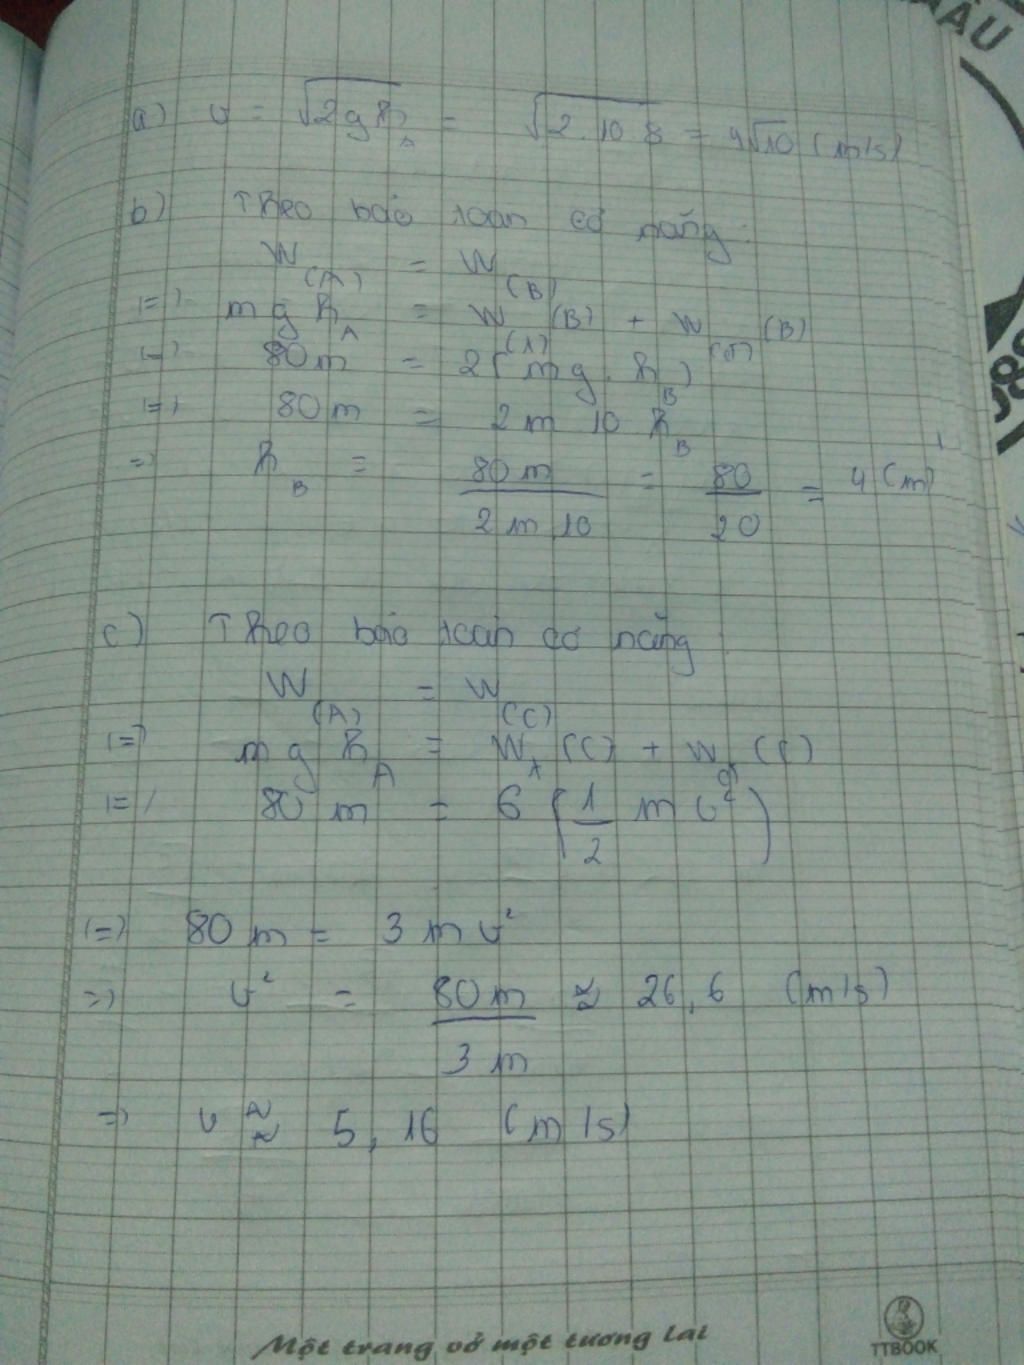 ẬU
a) v = √2gh_A = √2.10 8 = 4√10 (m/s)
b) Theo bảo toàn cơ năng:
W(A) = W(B)
(=) mgh_A = W(t)(B) + W(đ)(B)
(=) 80m = 2(mg.h_B)
(=) 80m = 2m 10 h_B
=) h_B = 80m/2m10 = 80/20 = 4 (m)
c) Theo bảo toàn cơ năng
W(A) = W(C)
(=) mgh_A = W_t(C) + W_đ(C)
(=) 80m = 6(1/2 mv²)
(=) 80m = 3mv²
=) v² = 80m/3m ≈ 26,6 (m/s)
=) v ≈ 5,16 (m/s)
Một trang vở một tương lai
TTBOOK